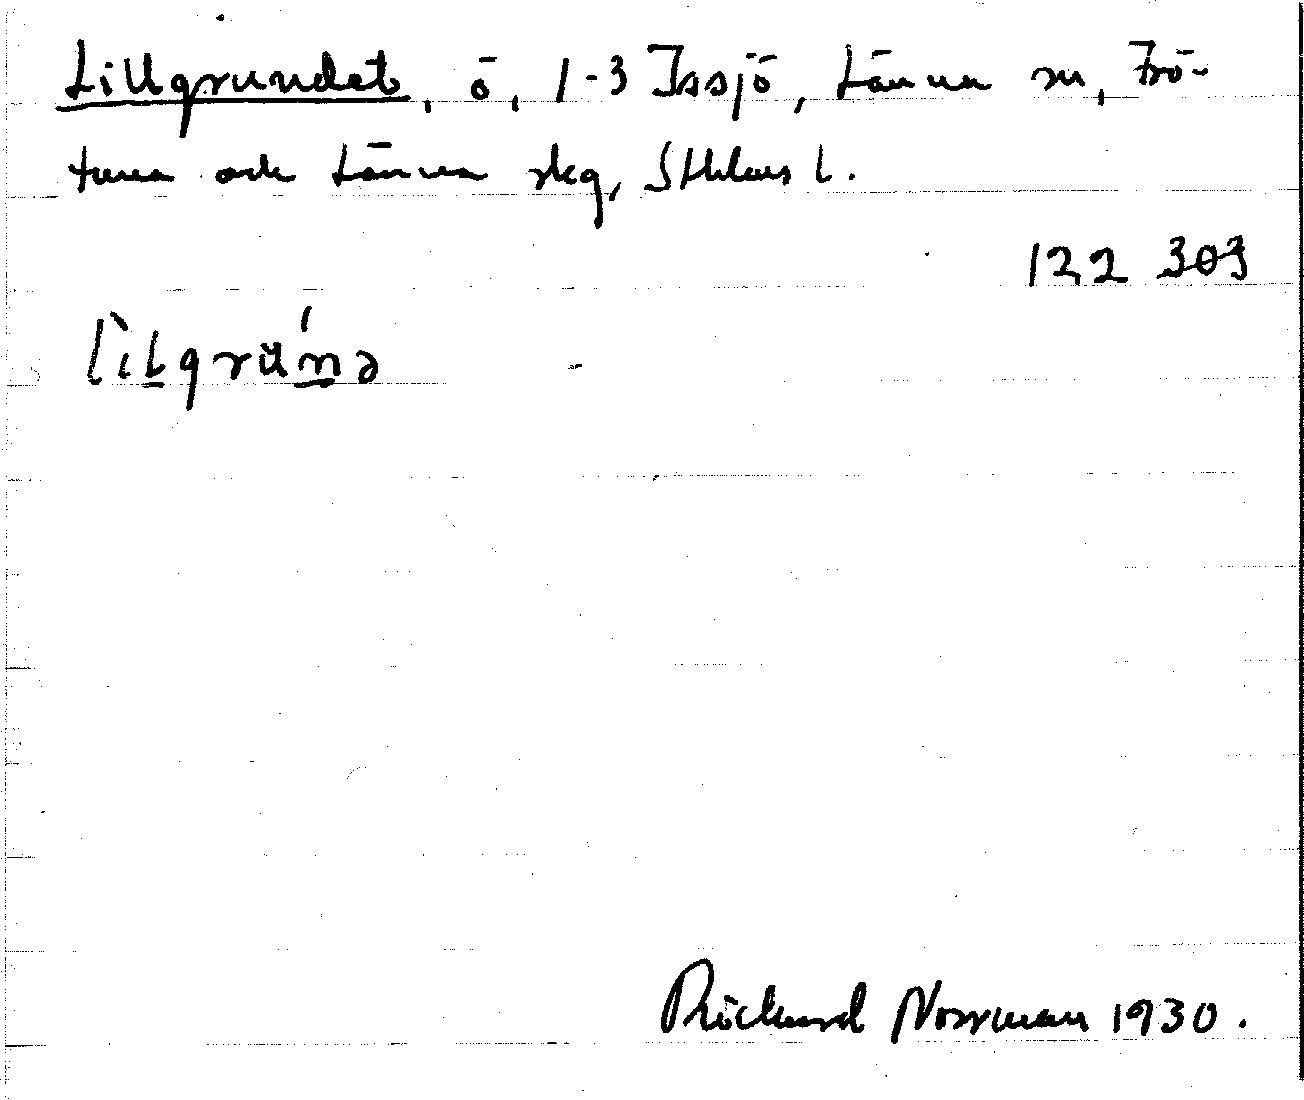 Lillgrundet, ö, 1-3 Issjö, Länna sn, Frö-
tuna och Länna skg, Sthlms l.
122 303
lìlgrún̠ə
Rickard Norrman 1930.